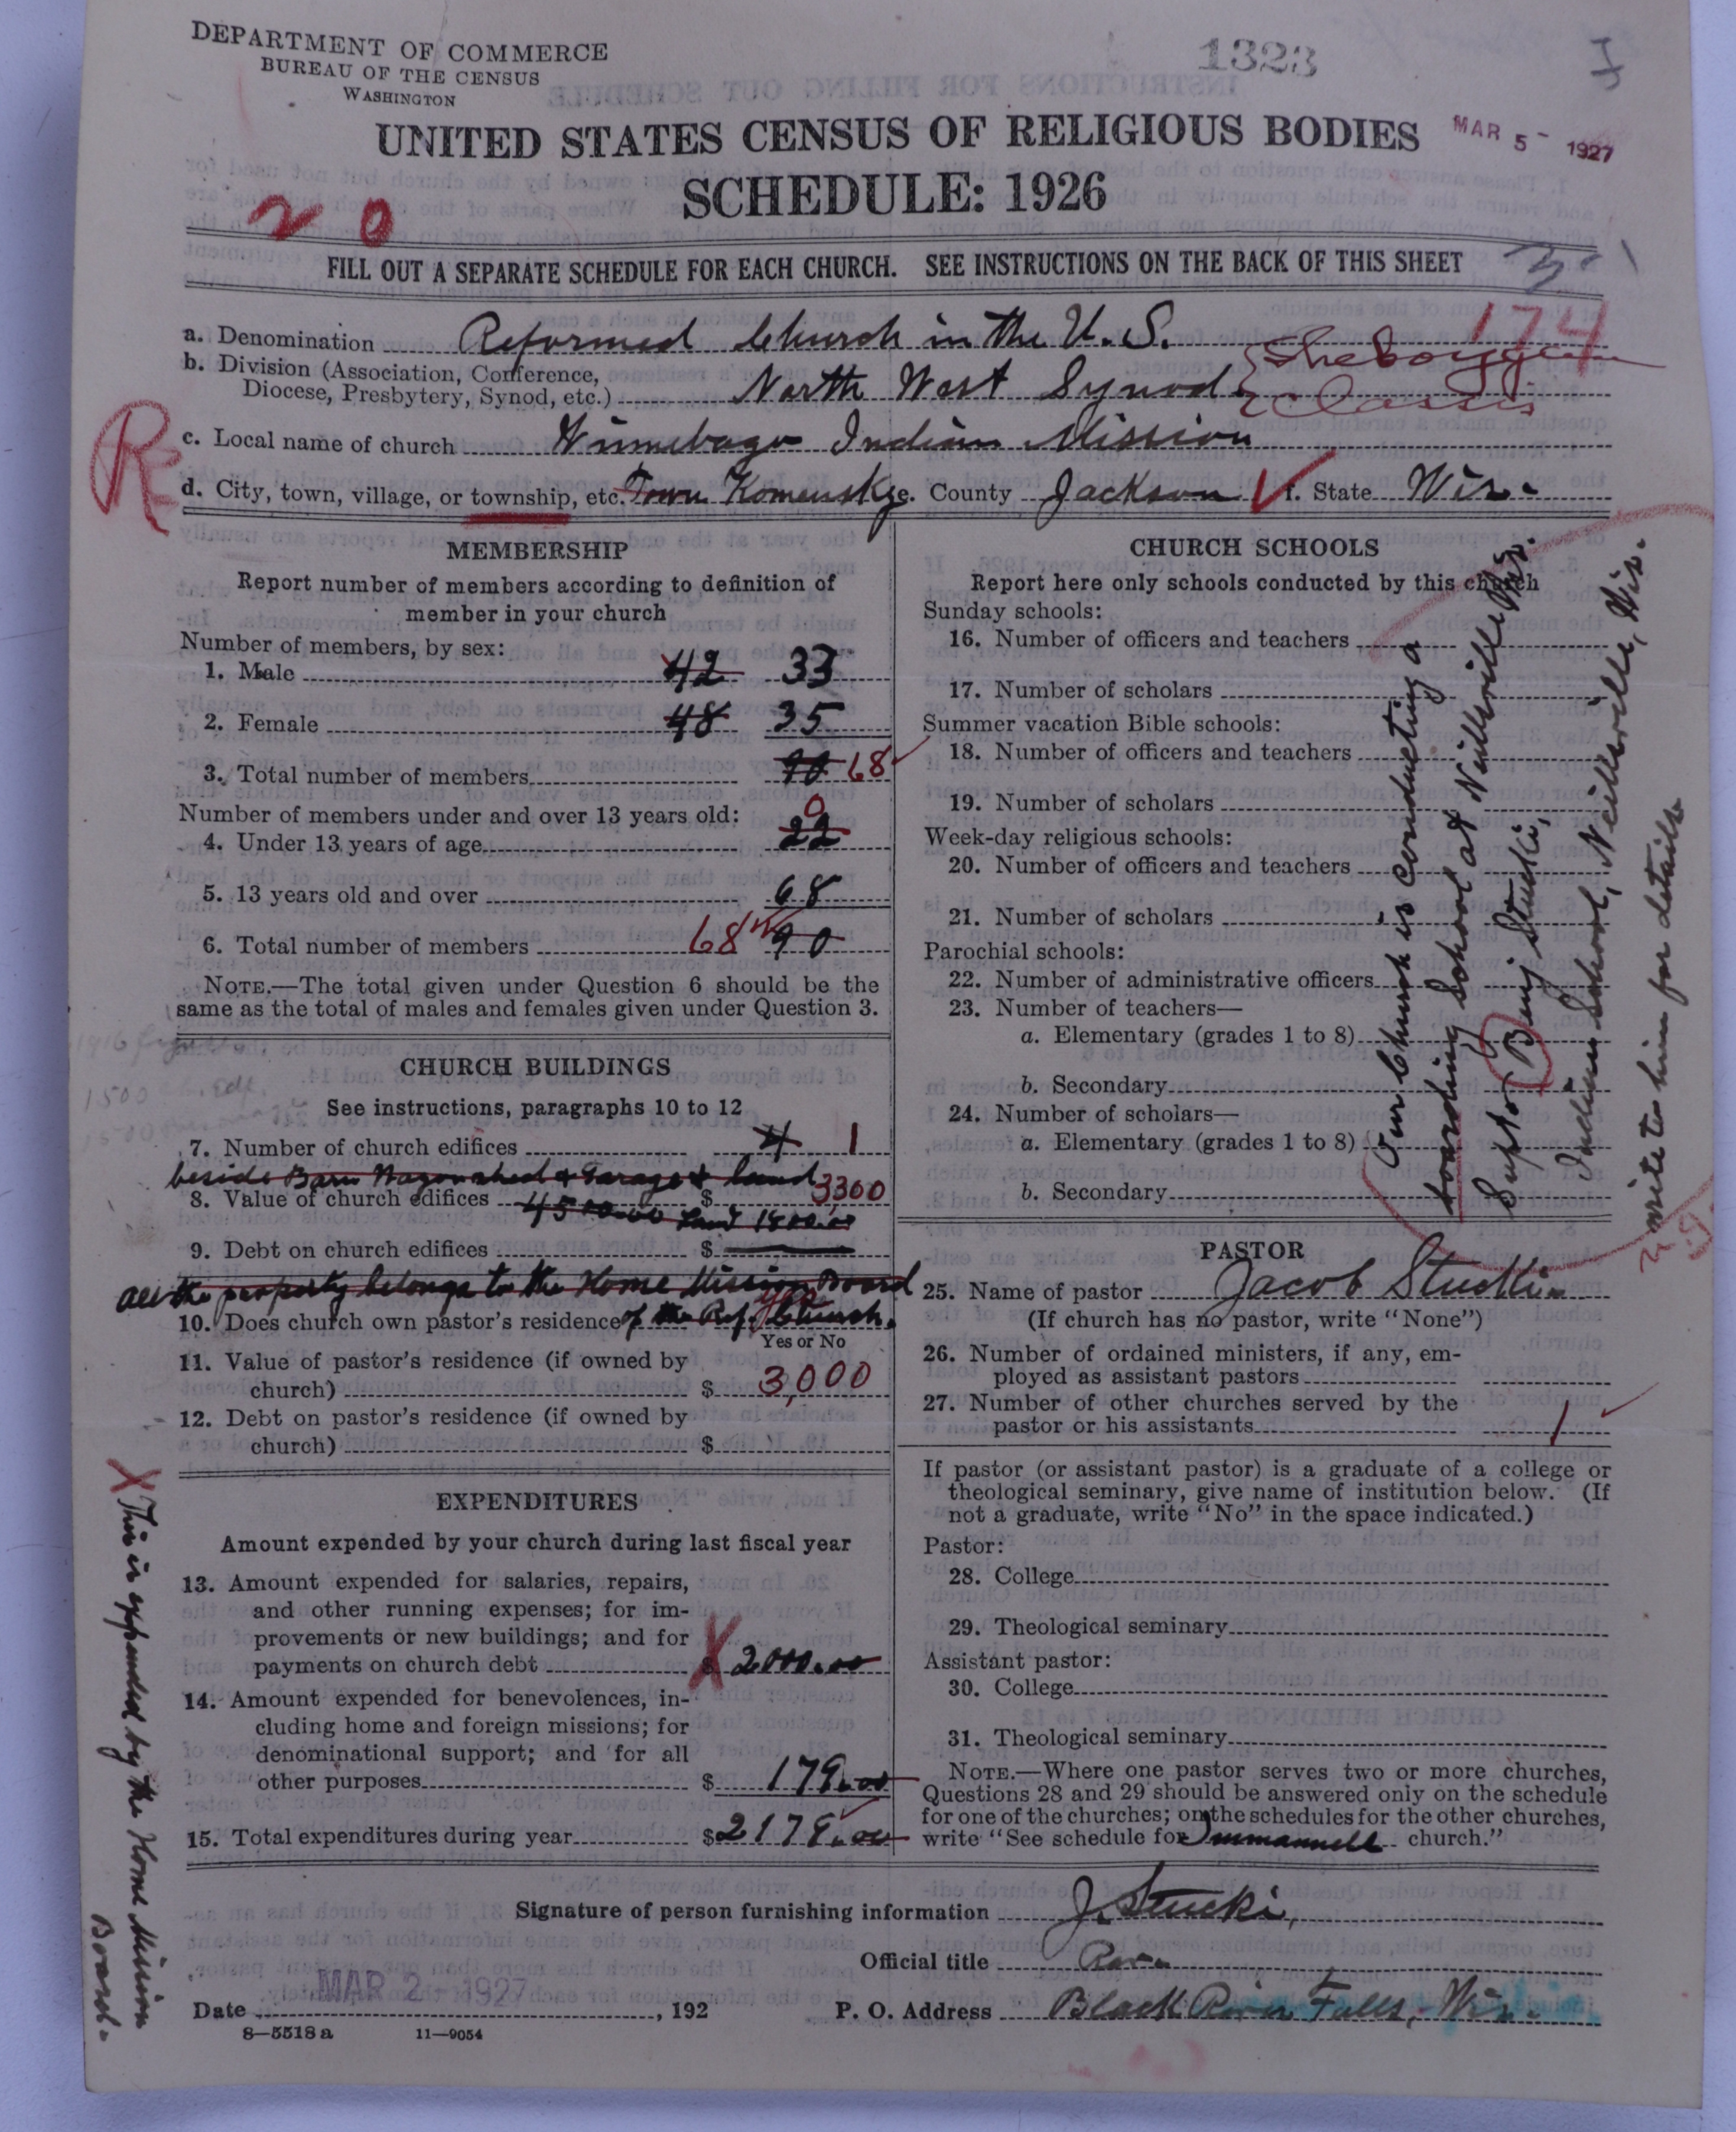 DEPARTMENT OF COMMERCE
BUREAU OF THE CENSUS
WASHINGTON
1323
UNITED STATES CENSUS OF RELIGIOUS BODIES
MAR 5 - 1927
SCHEDULE: 1926
20
FILL OUT A SEPARATE SCHEDULE FOR EACH CHURCH. SEE INSTRUCTIONS ON THE BACK OF THIS SHEET
174
a. Denomination Reformed Church in the U.S.
b. Division (Association, Conference,
Diocese, Presbytery, Synod, etc.) North West Synod Sheboygan Classis
c. Local name of church Winnebago Indian Mission
d. City, town, village, or township, etc. Town Komensky e. County Jackson f. State Wis.
MEMBERSHIP
Report number of members according to definition of
member in your church
Number of members, by sex:
1. Male 42 33
2. Female 48 35
3. Total number of members 90 68
Number of members under and over 13 years old: 0
4. Under 13 years of age 22
5. 13 years old and over 68
6. Total number of members 68 90
NOTE.—The total given under Question 6 should be the
same as the total of males and females given under Question 3.
1916 figures
1500 ch. Edf.
1500
CHURCH BUILDINGS
See instructions, paragraphs 10 to 12
7. Number of church edifices 4 1
beside Barn Wagonshed & Garage & land
8. Value of church edifices $ 3300
4500.00 Land 1500.00
9. Debt on church edifices $
All the property belongs to the Home Mission Board
10. Does church own pastor's residence of the Ref. Church. yes
Yes or No
11. Value of pastor's residence (if owned by
church) $ 3,000
12. Debt on pastor's residence (if owned by
church) $
EXPENDITURES
Amount expended by your church during last fiscal year
13. Amount expended for salaries, repairs,
and other running expenses; for im-
provements or new buildings; and for
payments on church debt X $ 2000.00
14. Amount expended for benevolences, in-
cluding home and foreign missions; for
denominational support; and for all
other purposes $ 179.00
15. Total expenditures during year $ 2179.00
X This is expended by the Home Mission
Board.
CHURCH SCHOOLS
Report here only schools conducted by this church
Sunday schools:
16. Number of officers and teachers
17. Number of scholars
Summer vacation Bible schools:
18. Number of officers and teachers
19. Number of scholars
Week-day religious schools:
20. Number of officers and teachers
21. Number of scholars
Parochial schools:
22. Number of administrative officers
23. Number of teachers—
a. Elementary (grades 1 to 8)
b. Secondary
24. Number of scholars—
a. Elementary (grades 1 to 8)
b. Secondary
Our Church is conducting a
boarding school at Neillsville Wis.
Supt. Benj Stucki,
Indian School, Neillsville, Wis.
write to him for details
PASTOR
25. Name of pastor Jacob Stucki
(If church has no pastor, write "None")
26. Number of ordained ministers, if any, em-
ployed as assistant pastors
27. Number of other churches served by the
pastor or his assistants 1
If pastor (or assistant pastor) is a graduate of a college or
theological seminary, give name of institution below. (If
not a graduate, write "No" in the space indicated.)
Pastor:
28. College
29. Theological seminary
Assistant pastor:
30. College
31. Theological seminary
NOTE.—Where one pastor serves two or more churches,
Questions 28 and 29 should be answered only on the schedule
for one of the churches; on the schedules for the other churches,
write "See schedule for Immanuell church."
Signature of person furnishing information J. Stucki,
Official title Rev.
Date MAR 2 1927, 192 P. O. Address Black River Falls, Wis.
8—5518 a 11—9054